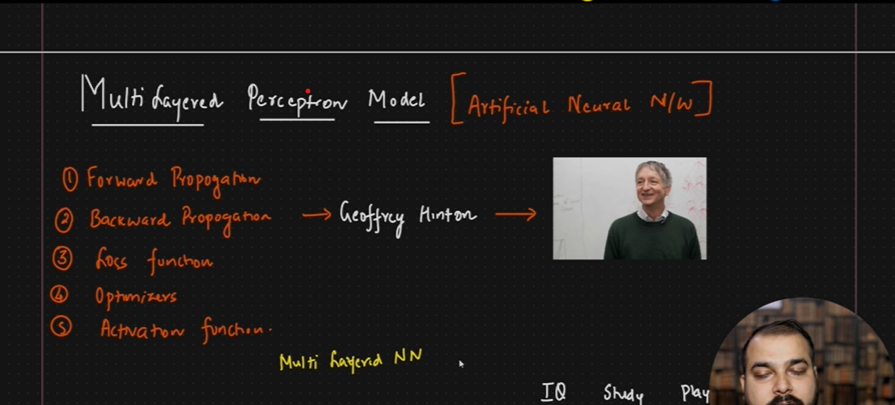 Multi Layered Perceptron Model [Artificial Neural N/W]
① Forward Propogation
② Backward Propogation → Geoffrey Hinton →
③ Loss function
④ Optimizers
⑤ Activation function.
Multi Layered NN
IQ Study Play